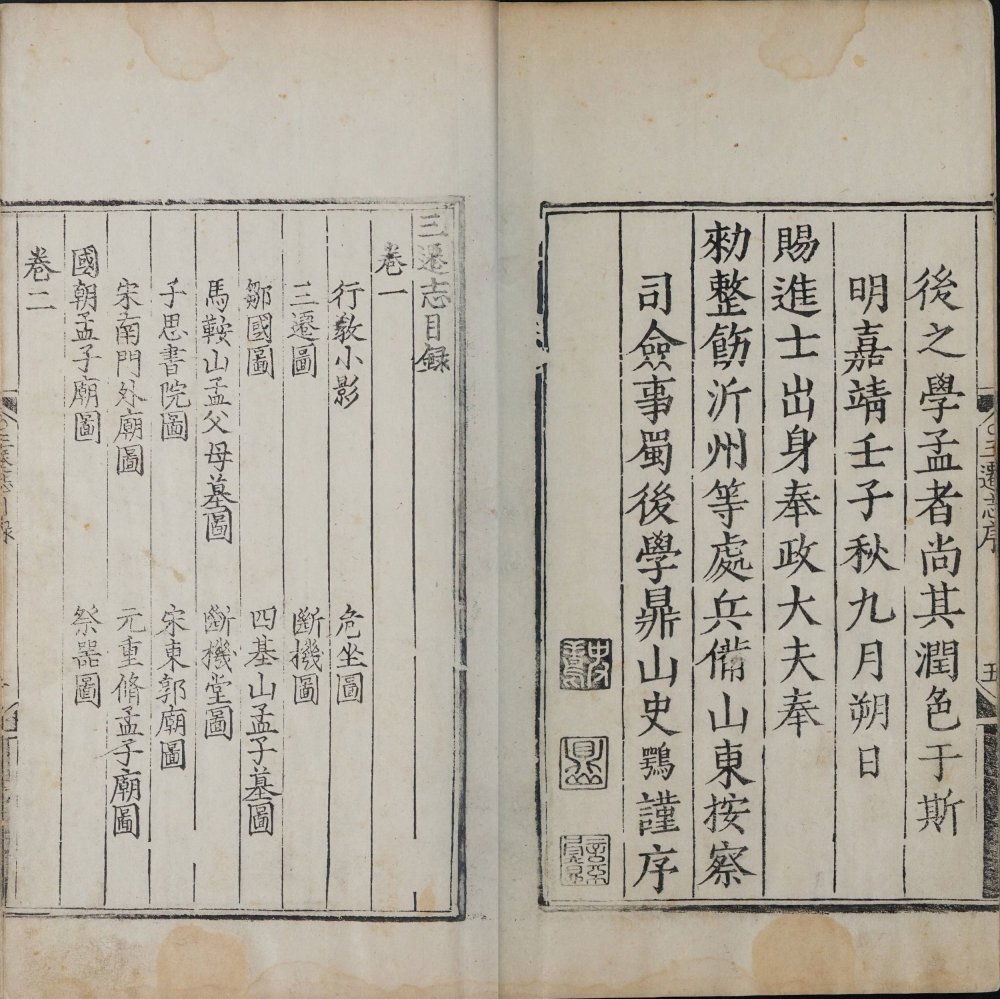 後之學孟者尚其潤色于斯
明嘉靖壬子秋九月朔日
賜進士出身奉政大夫奉
勑整飭沂州等處兵備山東按察
司僉事蜀後學鼎山史鶚謹序
三遷志序
五
三遷志目録
卷一
行教小影
危坐圖
三遷圖
斷機圖
鄒國圖
四基山孟子墓圖
馬鞍山孟父母墓圖
斷機堂圖
子思書院圖
宋東郭廟圖
宋南門外廟圖
元重脩孟子廟圖
國朝孟子廟圖
祭器圖
卷二